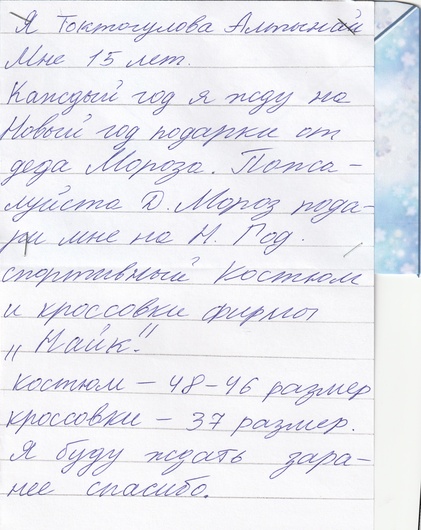 Я Токтогулова Алтынай
Мне 15 лет.
Каждый год я жду на
Новый год подарки от
деда Мороза. Пожа-
луйста Д. Мороз пода-
ри мне на Н. Год.
спортивный костюм
и кроссовки фирмы
„Найк".
костюм – 48-46 размер
кроссовки – 37 размер.
Я буду ждать зара-
нее спасибо.